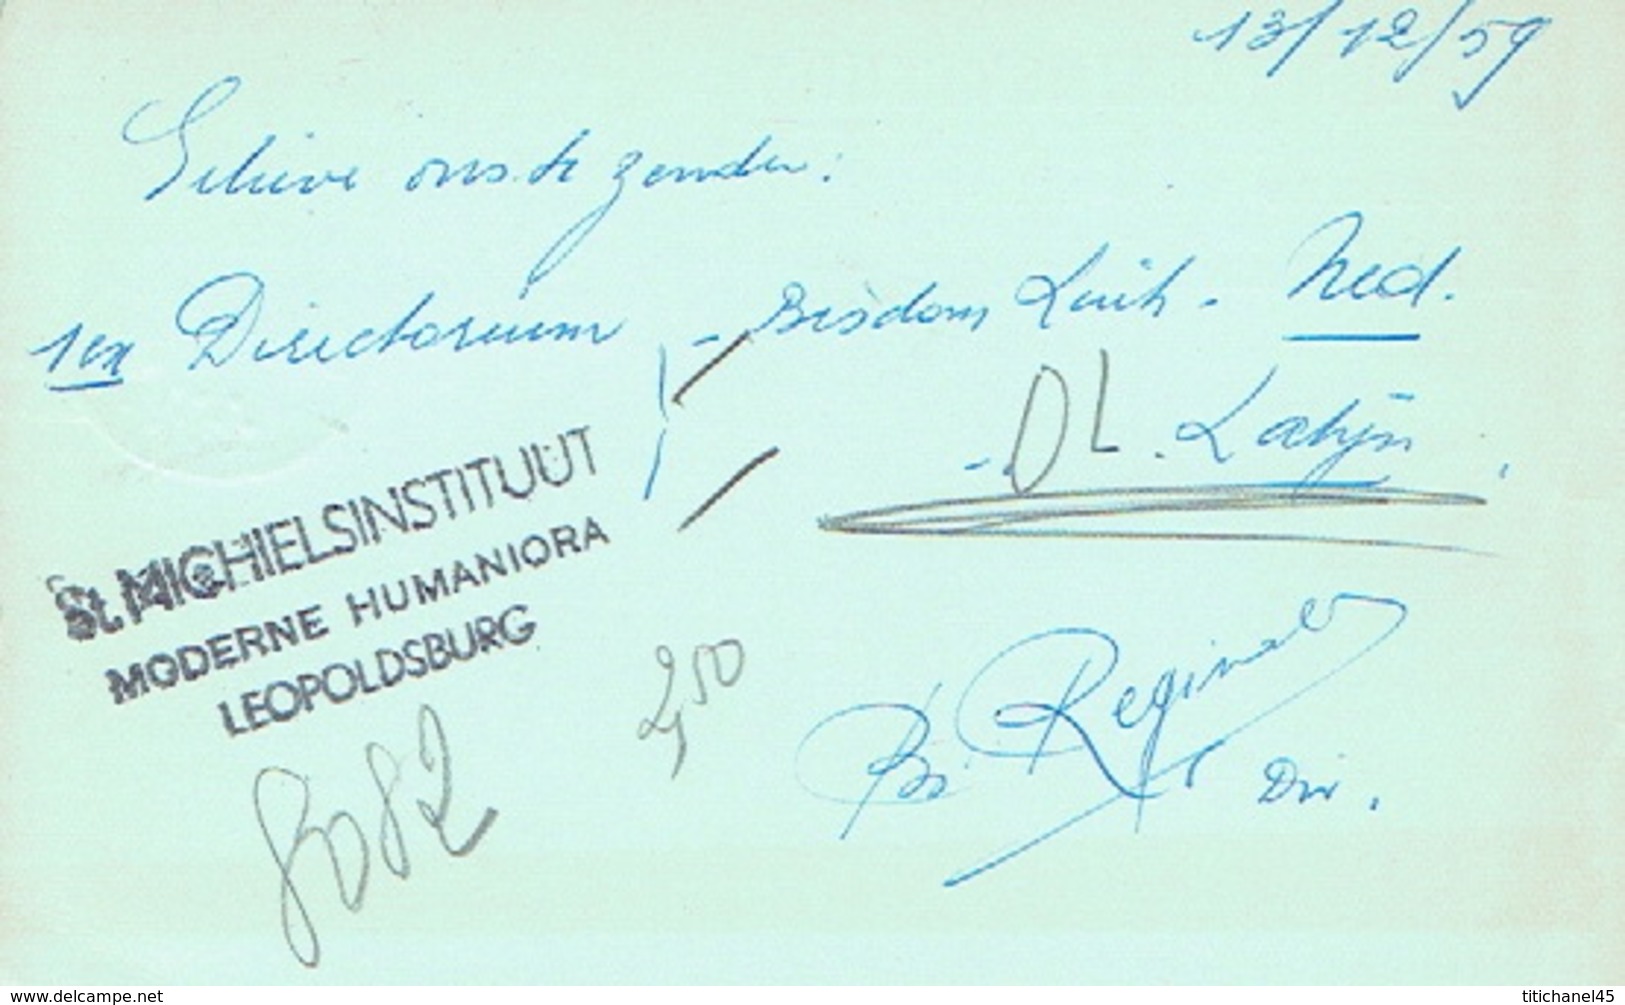 13/12/59
Gelieve ons te zenden:
1 ex Directorium - Bisdom Luik - Ned.
- OL. Latijn.
St. MICHIELSINSTITUUT
MODERNE HUMANIORA
LEOPOLDSBURG
2,50
8082
Br Reginald
Dir.
www.delcampe.net
titichanel45